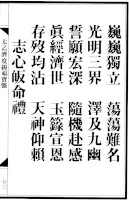 太乙濟度錫福寶懺
巍巍獨立　蕩蕩難名
光明三界　澤及九幽
誓願宏深　隨機赴感
眞經濟世　玉籙宣恩
存歿均沾　天神仰賴
志心皈命禮